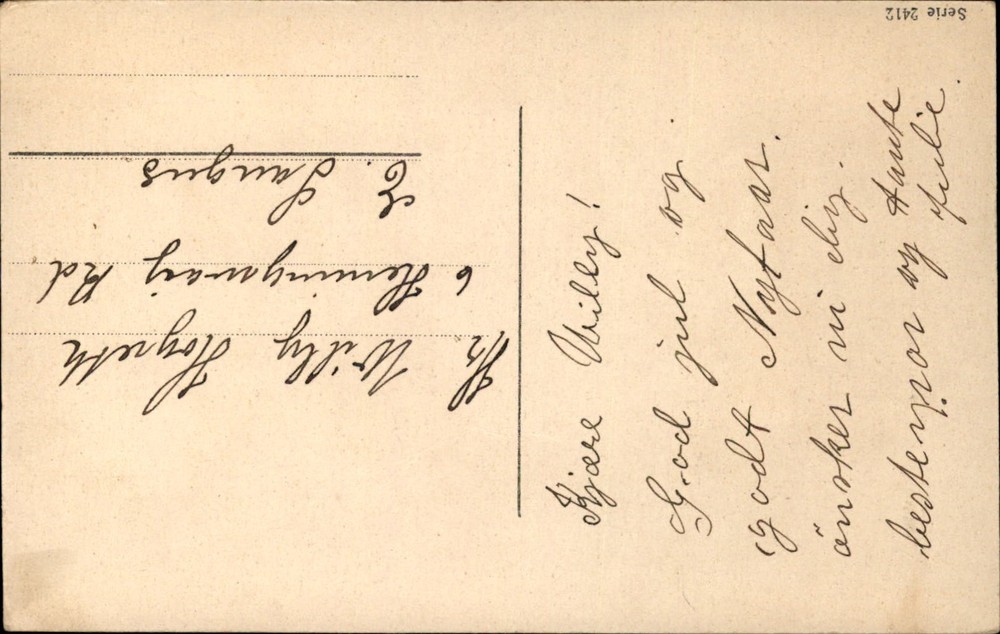 Serie 2412
Kjære Willy!
God jul og
godt Nytaar.
önsker vi dig.
bestemor og tante
Julie.
Hr Willy Hogseth
6 Henningsvaig Rd
E.